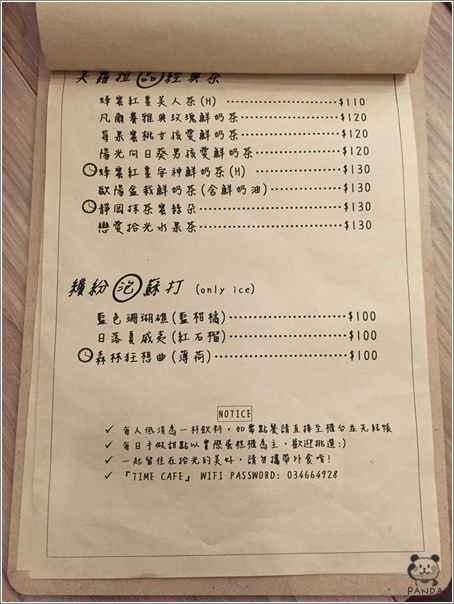 艾蘿拉 品 經典茶
蜂蜜紅棗美人茶(H) $110
凡爾賽雅典玫瑰鮮奶茶 $120
莓果蜜桃女孩愛鮮奶茶 $120
陽光向日葵男孩愛鮮奶茶 $120
蜂蜜紅棗女神鮮奶茶(H) $130
歐陽盆栽鮮奶茶(含鮮奶油) $130
靜岡抹茶蜜絲朵 $130
戀愛拾光水果茶 $130
繽紛 泡 蘇打 (only ice)
藍色珊瑚礁(藍柑橘) $100
日落夏威夷(紅石榴) $100
森林狂想曲(薄荷) $100
NOTICE
✓ 每人低消為一杯飲料，如需點餐請直接至櫃台並先結帳
✓ 每日手做甜點以實際蛋糕櫃為主，歡迎挑選:)
✓ 一起留住在拾光的美好，請勿攜帶外食唷!
✓ 「TIME CAFE」 WIFI PASSWORD: 034664928
PANDA